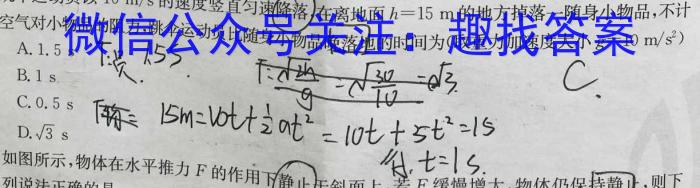 以 10 m/s 的速度竖直匀速降落,在离地面 h=15 m 的地方掉落一随身小物品,不计
空气对小物品的阻力,跳伞运动员比随身小物品 落地的时间为(取重力加速度大小 10 m/s²)
微信公众号关注:趣找答案
A. 1.5
B. 1 s
C. 0.5 s
D. √3 s
1.5s.
√(2h/g) = √(30/10) = √3.
C.
15m=V0t+½at²=10t+5t²=15
t=1s.
如图所示,物体在水平推力 F 的作用下静止于斜面上,若 F 缓慢增大,物体仍保持静止,则下
列说法正确的是